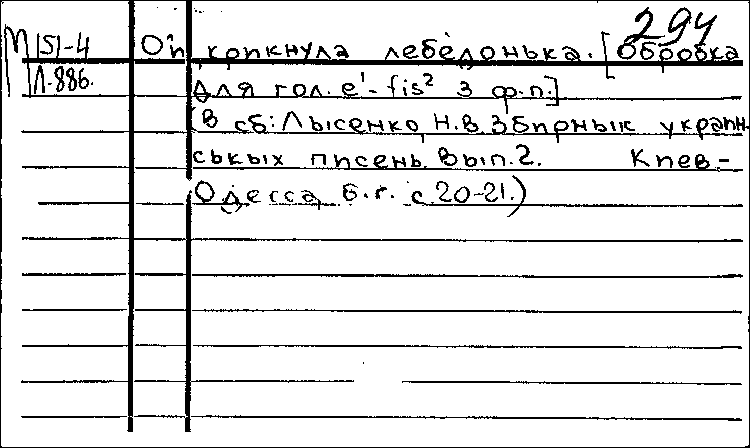 294
М 151-4 Ой, крикнула лебёдонька. [Обробка
Л-886. для гол. e'-fis² з ф.п.]
(В сб: Лысенко, Н.В. Збирнык украин-
ськых писень. Вып. 2. Киев-
Одесса, б.г. с. 20-21.)